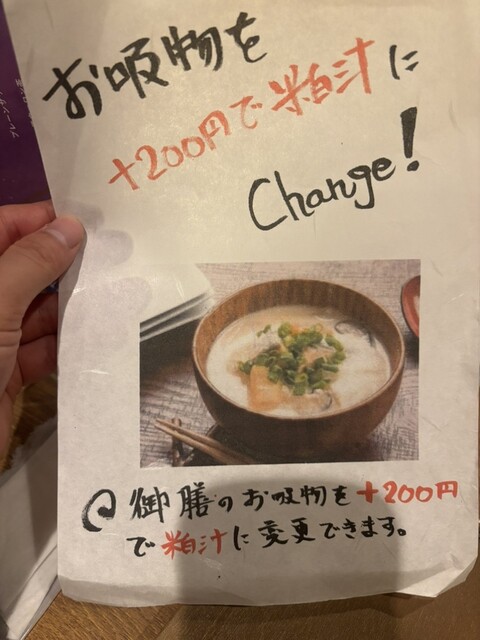 お吸物を
+200円で粕汁に
Change!
御膳のお吸物を+200円
で粕汁に変更できます。